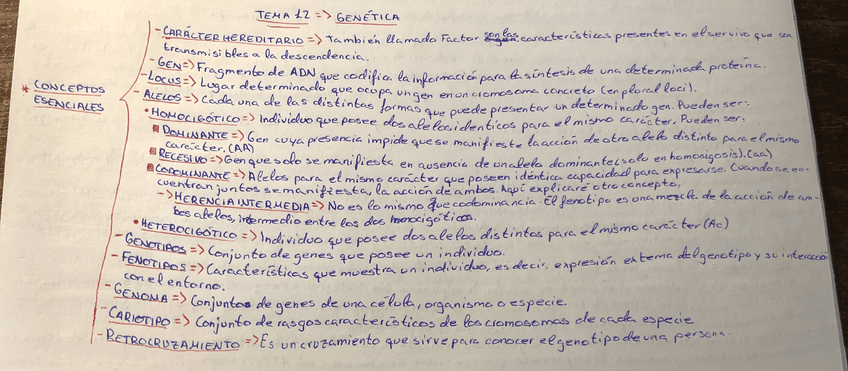 TEMA 12 => GENÉTICA
- CARÁCTER HEREDITARIO => También llamado Factor son las características presentes en el ser vivo que son
transmisibles a la descendencia.
- GEN => Fragmento de ADN que codifica la información para la síntesis de una determinada proteína.
- LOCUS => Lugar determinado que ocupa un gen en un cromosoma concreto (en plural loci).
* CONCEPTOS ESENCIALES
- ALELOS => Cada una de las distintas formas que puede presentar un determinado gen. Pueden ser:
• HOMOCIGÓTICO => Individuo que posee dos alelos identicos para el mismo carácter. Pueden ser:
DOMINANTE => Gen cuya presencia impide que se manifieste la acción de otro alelo distinto para el mismo
carácter. (AA)
RECESIVO => Gen que solo se manifiesta en ausencia de un alelo dominante (solo en homocigosis). (aa)
CODOMINANTE => Alelos para el mismo carácter que poseen idéntica capacidad para expresarse. Cuando se en-
cuentran juntos se manifiesta, la acción de ambos. Aquí explicaré otro concepto.
-> HERENCIA INTERMEDIA => No es lo mismo que codominancia. El fenotipo es una mezcla de la acción de am-
bos alelos, intermedio entre los dos homocigóticos.
• HETEROCIGÓTICO => Individuo que posee dos alelos distintos para el mismo carácter (Aa)
- GENOTIPOS => Conjunto de genes que posee un individuo.
- FENOTIPOS => Características que muestra un individuo, es decir, expresión externa del genotipo y su interacción
con el entorno.
- GENOMA => Conjuntos de genes de una célula, organismo o especie.
- CARIOTIPO => Conjunto de rasgos característicos de los cromosomas de cada especie
- RETROCRUZAMIENTO => Es un cruzamiento que sirve para conocer el genotipo de una persona.